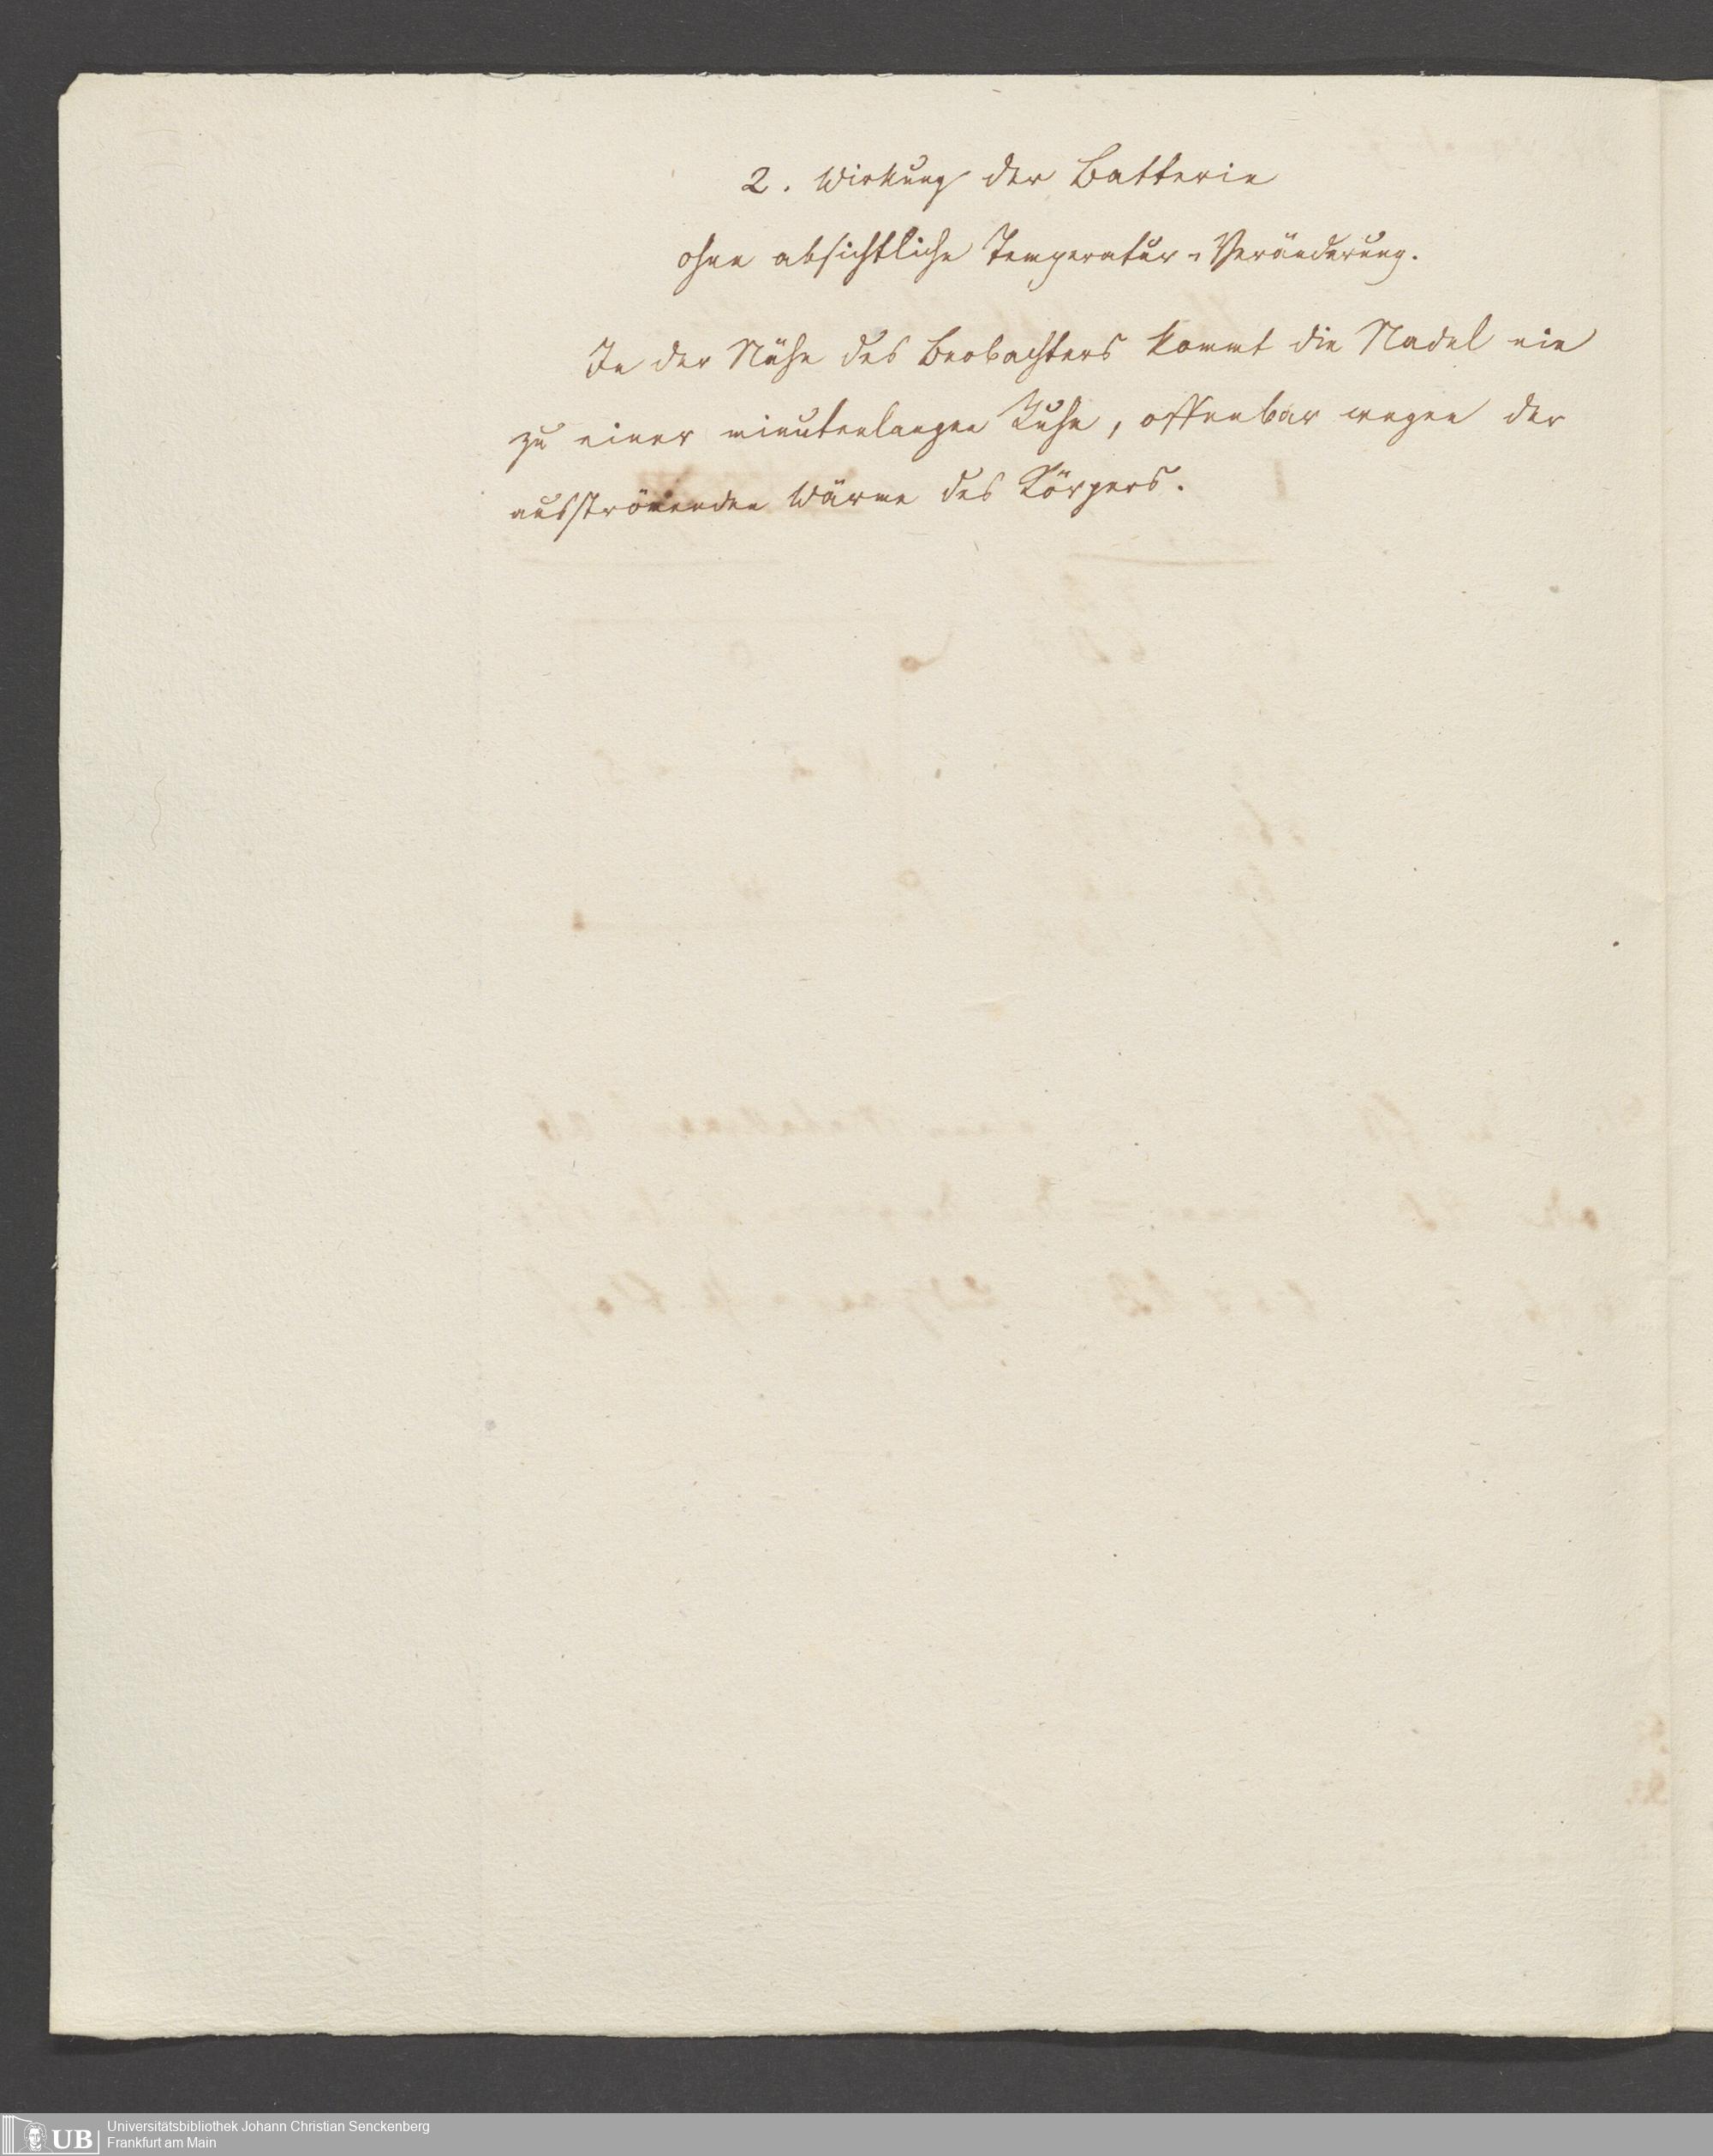 2. Wirkung der Batterie
ohne absichtliche Temperatur-Veränderung.
In der Nähe des Beobachters kommt die Nadel nie
zu einer minutenlangen Ruhe, offenbar wegen der
ausströmenden Wärme des Körpers.
UB
Universitätsbibliothek Johann Christian Senckenberg
Frankfurt am Main